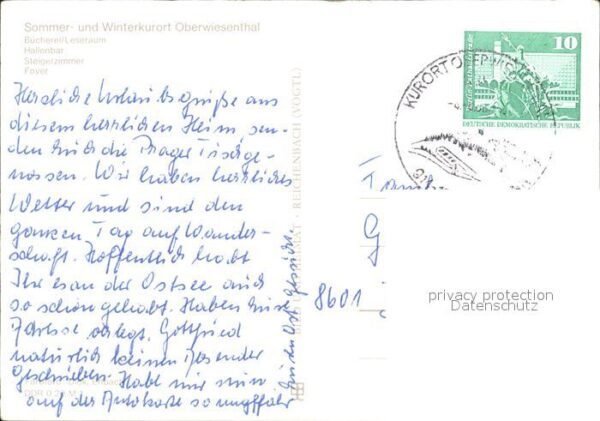 Sommer- und Winterkurort Oberwiesenthal
Bücherei/Leseraum
Hallenbar
Steigerzimmer
Foyer
Herzliche Urlaubsgrüße aus
diesem herrlichen Heim, sen-
den Euch die Prager Tischge-
nossen. Wir haben herrliches
Wetter und sind den
ganzen Tag auf Wander-
schaft. Hoffentlich habt
Ihr es an der Ostsee auch
so schön gehabt. Haben Eure
Adresse verlegt. Gottfried
natürlich keinen Absender
geschrieben. Habe mir nun
auf der Autokarte so ungefähr
den Ort gesucht.
REICHENBACH (VOGTL)
KURORT OBERWIESENTHAL
10
DEUTSCHE DEMOKRATISCHE REPUBLIK
Fam
G
8601
privacy protection
Datenschutz